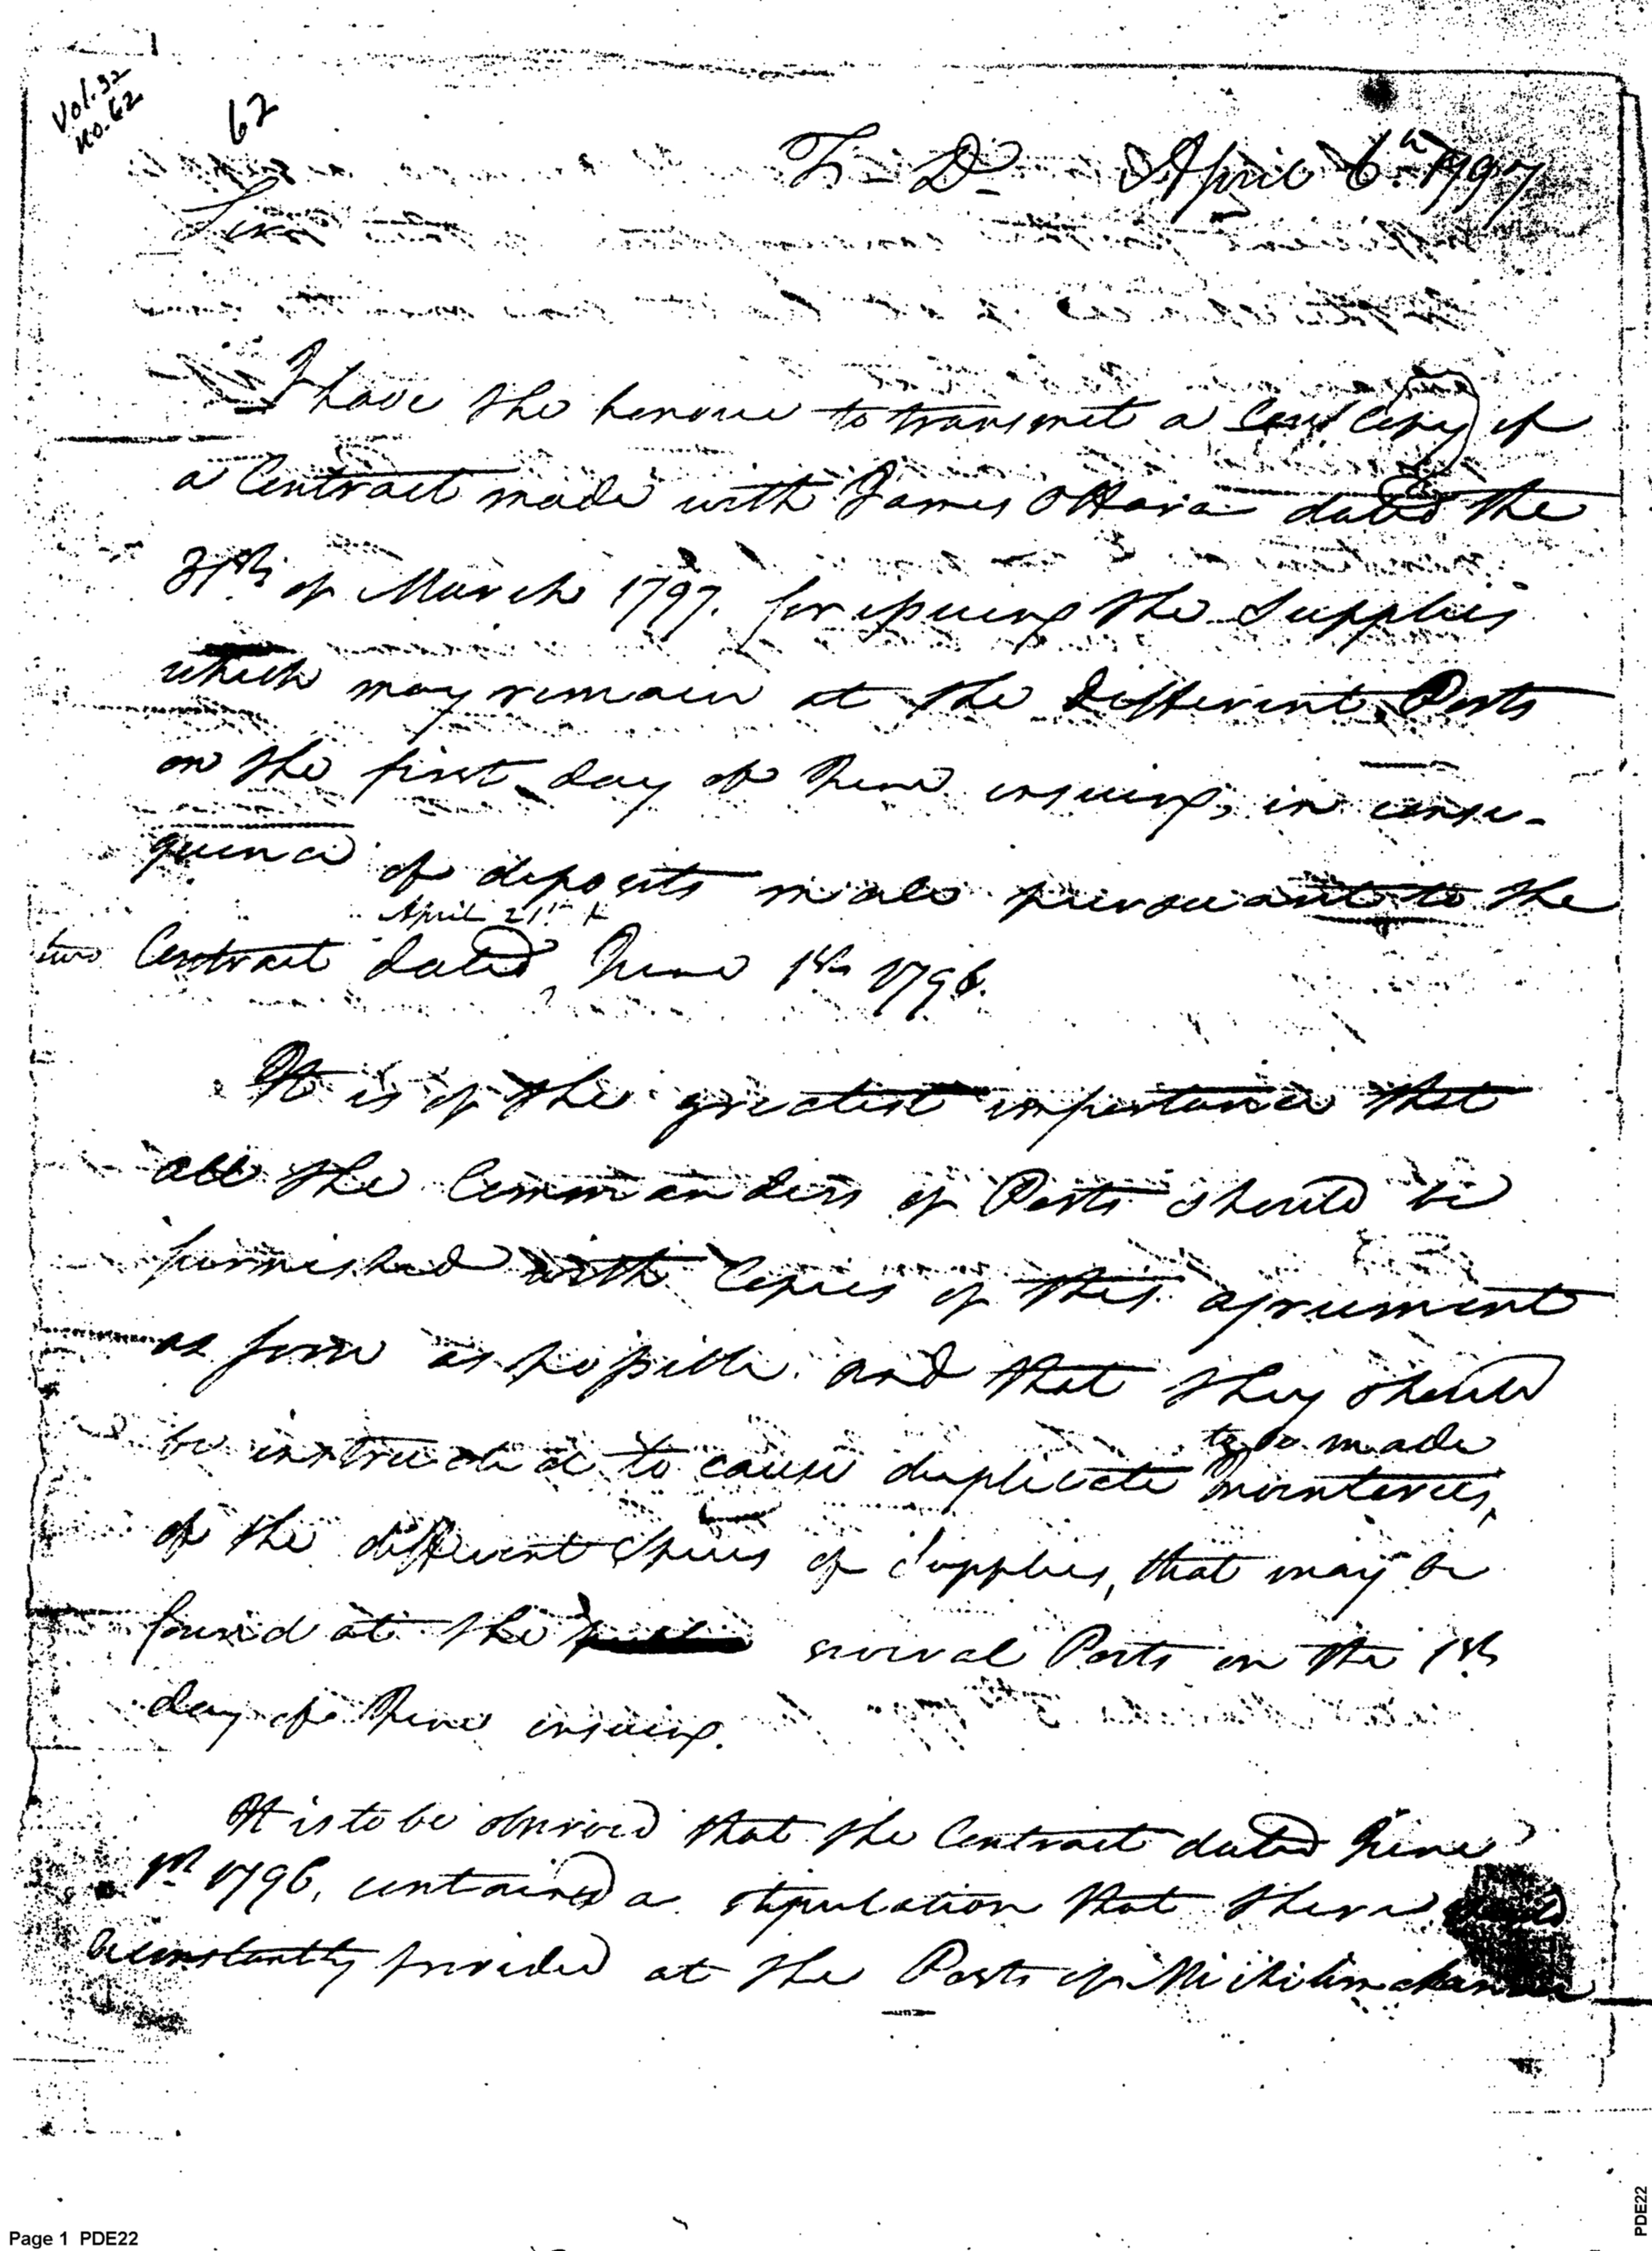 Vol. 32
no. 62
62
T. D. April 6th 1797
Sir
I have the honour to transmit a Copy of
a Contract made with James OHara dated the
of March 1797. for issuing the Supplies
which may remain at the different Posts
on the first day of June ensuing, in conse-
quence of deposits made pursuant to the
April 21st &
two Contract dated June 1st 1796.
It is of the greatest importance that
all the Commanders of Posts should be
furnished with Copies of this agreement
as soon as possible and that they should
to be made
be instructed to cause duplicate Inventories,
of the different Species of Supplies, that may be
found at the several Posts on the 1st
day of June ensuing.
It is to be observed that the Contract dated June
1st 1796, contained a stipulation that there should
be constantly provided at the Posts of Michilimackinac
Page 1 PDE22
PDE22